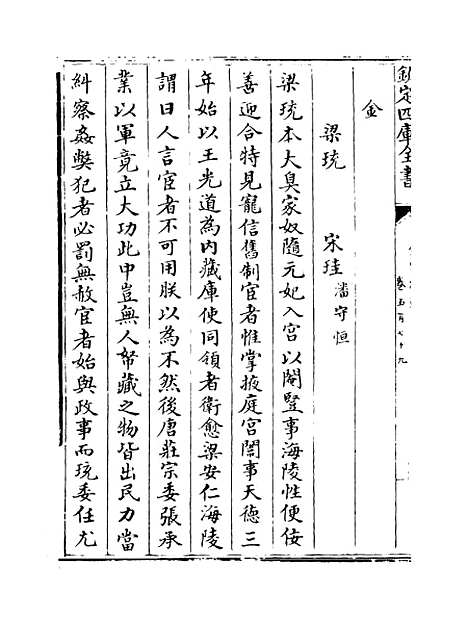 欽定四庫全書
卷五百七十九
金
梁珫　宋珪 潘守恒
梁珫本大臭家奴隨元妃入宮以閹豎事海陵性便佞
善迎合特見寵信舊制宦者惟掌掖庭宮闈事天德三
年始以王光道為内藏庫使同領者衛愈梁安仁海陵
謂曰人言宦者不可用朕以為不然後唐莊宗委張承
業以軍竟立大功此中豈無人帑藏之物皆出民力當
糾察姦弊犯者必罰無赦宦者始與政事而珫委任尤